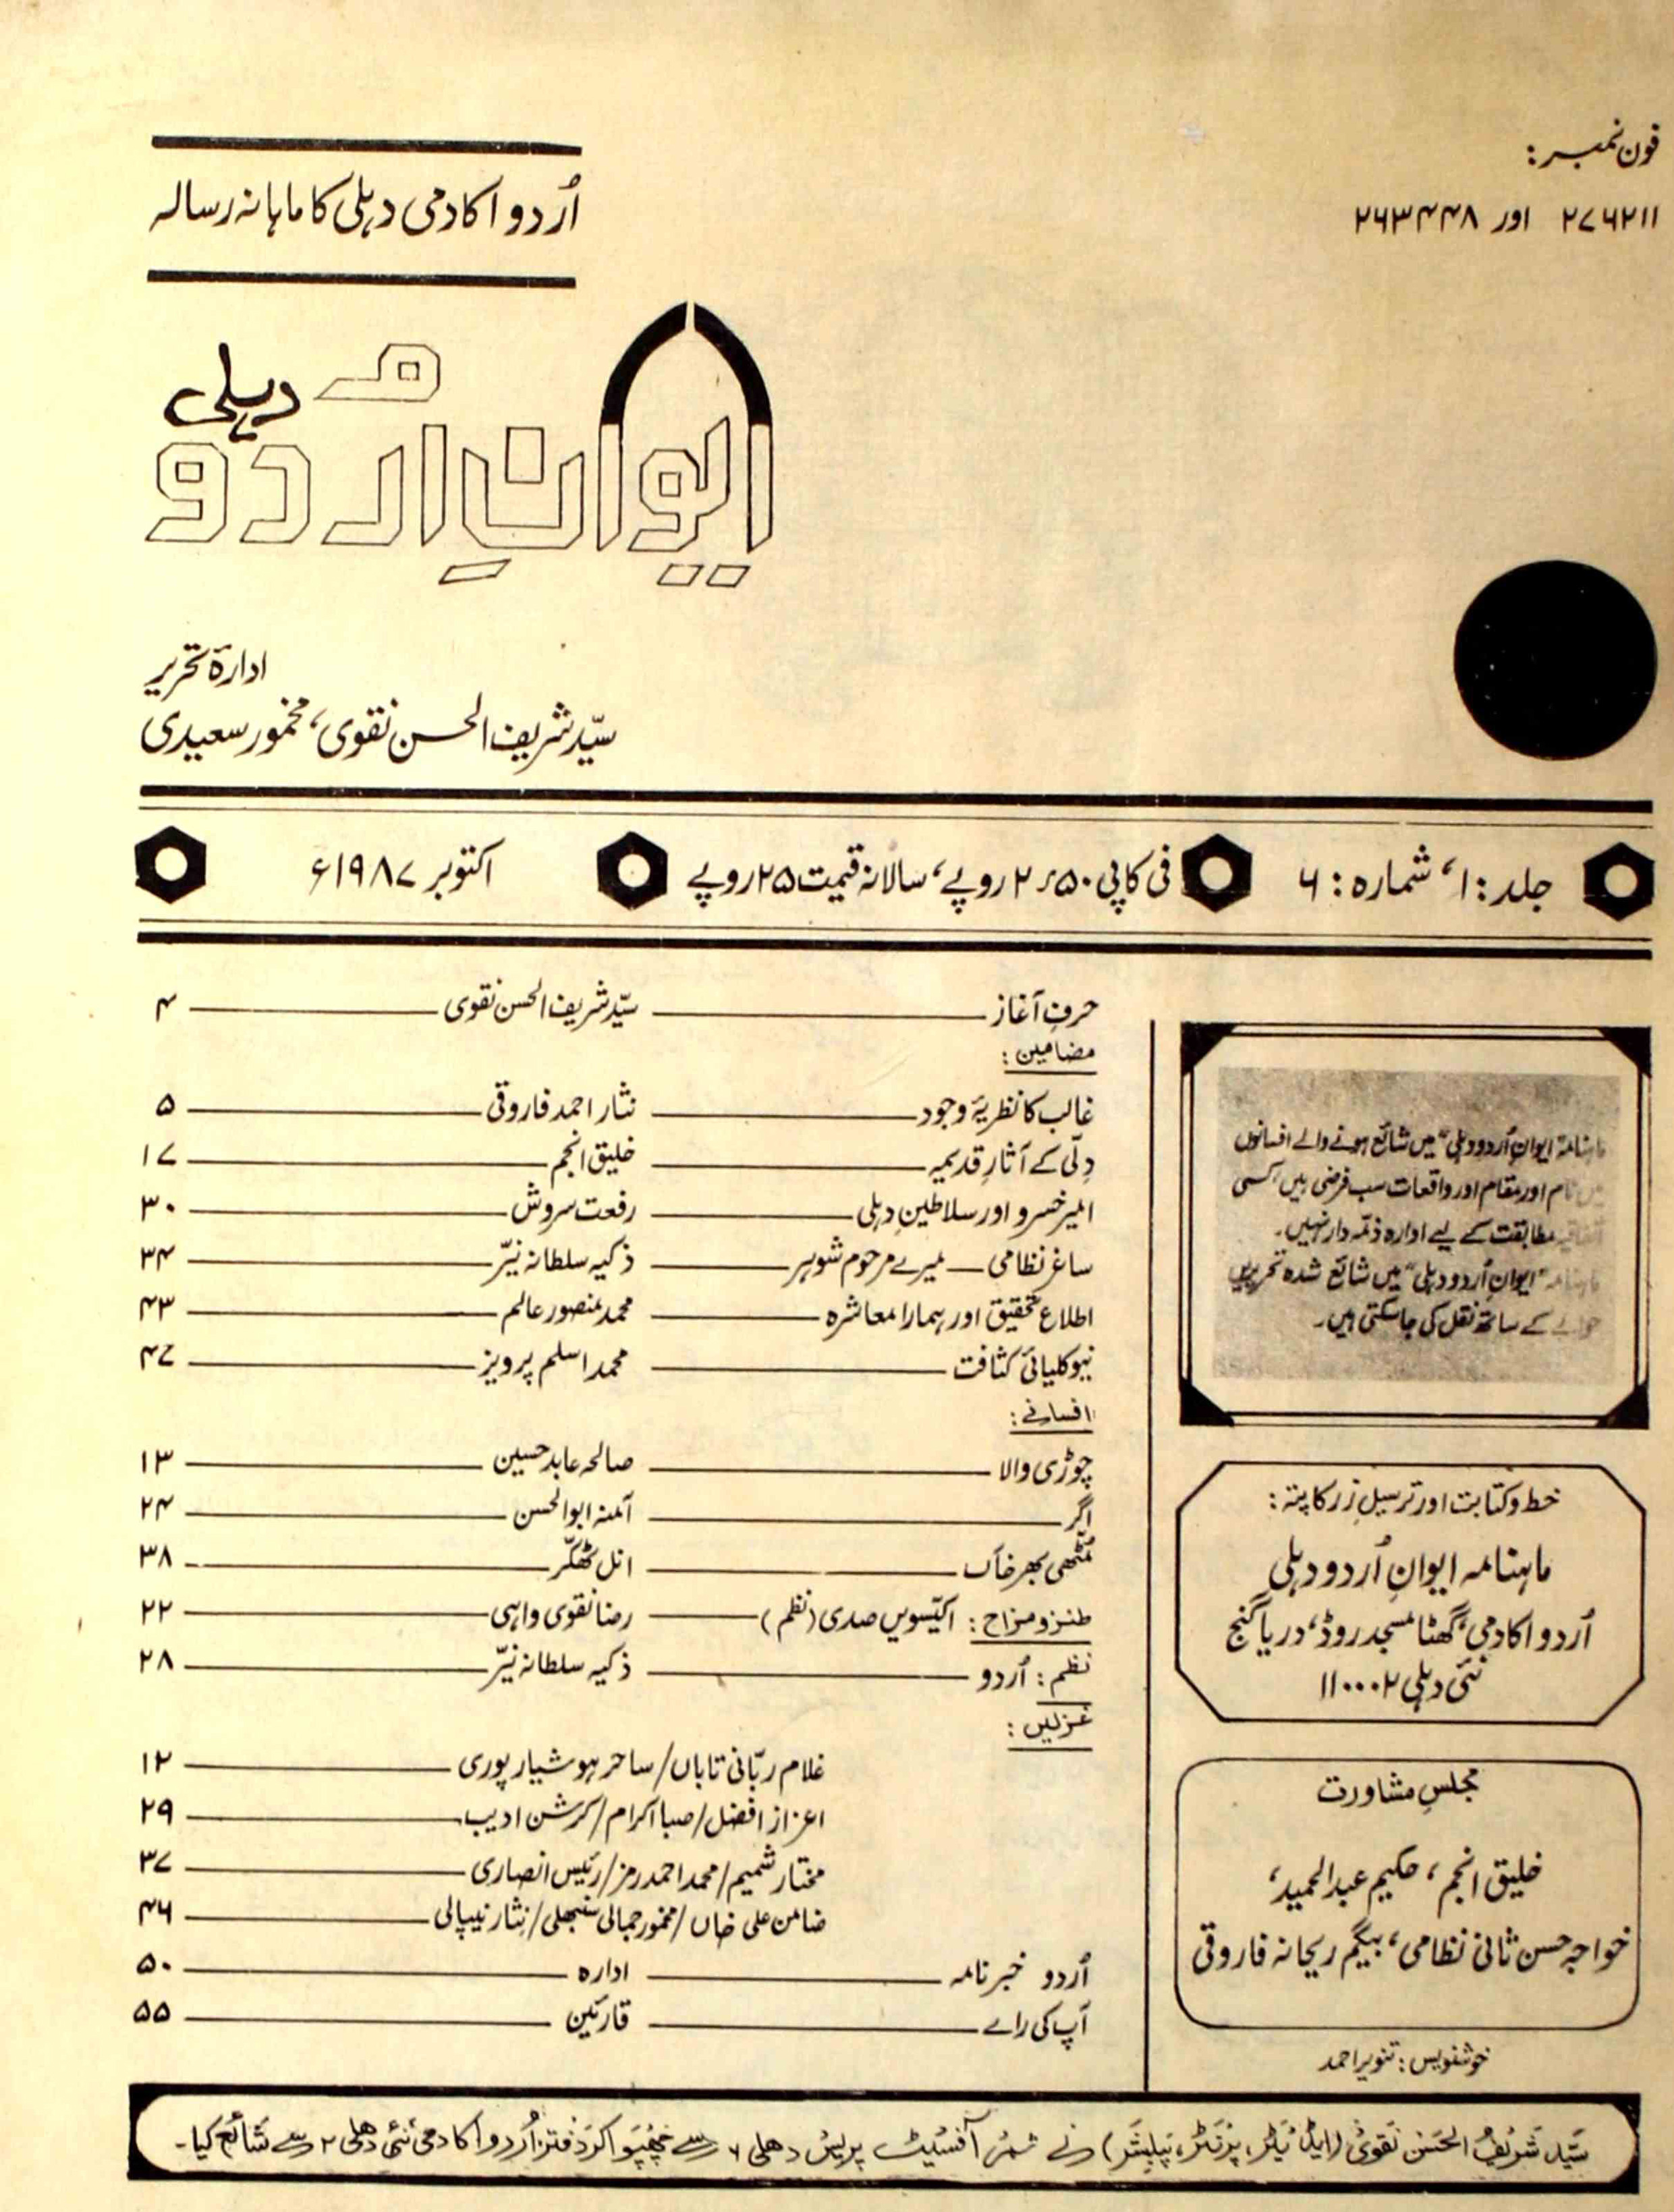 فون نمبر:
۲۷۶۲۱۱ اور ۲۶۳۴۴۸
اُردو اکادمی دہلی کا ماہانہ رسالہ
ماہنامہ ایوانِ اُردو دہلی
ادارۂ تحریر
سیّد شریف الحسن نقوی، مخمور سعیدی
جلد: ۱، شمارہ: ۶
فی کاپی ۲٫۵۰ روپے، سالانہ قیمت ۲۵ روپے
اکتوبر ۱۹۸۷ء
حرفِ آغاز سیّد شریف الحسن نقوی ۴
مضامین:
غالب کا نظریۂ وجود نثار احمد فاروقی ۵
دلّی کے آثارِ قدیمہ خلیق انجم ۱۷
امیر خسرو اور سلاطینِ دہلی رفعت سروش ۳۰
ساغر نظامی — میرے مرحوم شوہر ذکیہ سلطانہ نیّر ۳۴
اطلاع تحقیق اور ہمارا معاشرہ محمد منصور عالم ۴۳
نیوکلیائی کثافت محمد اسلم پرویز ۴۷
افسانے:
چوڑی والا صالحہ عابد حسین ۱۳
اگر آمنہ ابوالحسن ۲۴
مٹّھی بھر خاک انل ٹھکّر ۳۸
طنز و مزاح: اکیّسویں صدی (نظم) رضا نقوی واہی ۲۲
نظم: اُردو ذکیہ سلطانہ نیّر ۲۸
غزلیں:
غلام ربّانی تاباں/ساحر ہوشیارپوری ۱۲
اعزاز افضل/صبا اکرام/کرشن ادیب ۲۹
مختار شمیم/محمد احمد رمز/رئیس انصاری ۳۷
ضامن علی خاں/مخمور جمالی سنبھلی/نثار نیپالی ۴۶
اُردو خبرنامہ ادارہ ۵۰
آپ کی رائے قارئین ۵۵
ماہنامہ ایوانِ اُردو دہلی" میں شائع ہونے والے افسانوں
میں نام اور مقام اور واقعات سب فرضی ہیں، کسی
اتفاقیہ مطابقت کے لیے ادارہ ذمّہ دار نہیں۔
ماہنامہ "ایوانِ اُردو دہلی" میں شائع شدہ تحریریں
حوالے کے ساتھ نقل کی جاسکتی ہیں۔
خط و کتابت اور ترسیلِ زر کا پتہ:
ماہنامہ ایوانِ اُردو دہلی
اُردو اکادمی، گھٹا مسجد روڈ، دریا گنج
نئی دہلی ۱۱۰۰۰۲
مجلسِ مشاورت
خلیق انجم، حکیم عبدالحمید،
خواجہ حسن ثانی نظامی، بیگم ریحانہ فاروقی
خوشنویس: تنویر احمد
سیّد شریف الحسن نقوی (ایڈیٹر، پرنٹر، پبلیشر) نے ثمر آفسیٹ پریس دھلی ۶ سے چھپوا کر دفتر اُردو اکادمی نئی دھلی ۲ سے شائع کیا۔